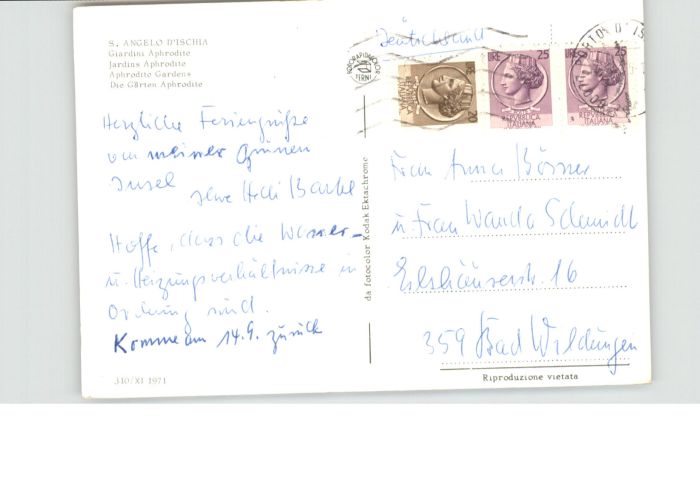 S. ANGELO D'ISCHIA
Giardini Aphrodite
Jardins Aphrodite
Aphrodite Gardens
Die Gärten Aphrodite
Herzliche Feriengrüße
von meiner Grünen
Insel
Hoffe, dass die Wasser-
u. Heizungsverhältnisse in
Ordnung sind.
Komme am 14.9. zurück
340/XI 1971
da fotocolor Kodak Ektachrome
FOTORAPIDACOLOR
TERNI
Deutschland
20
LIRE 25
REPVBBLICA
ITALIANA
LIRE 25
REPVBBLICA
ITALIANA
Frau Anna Börner
u. Frau Wanda Schmidt
16
359 Bad Wildungen
Riproduzione vietata